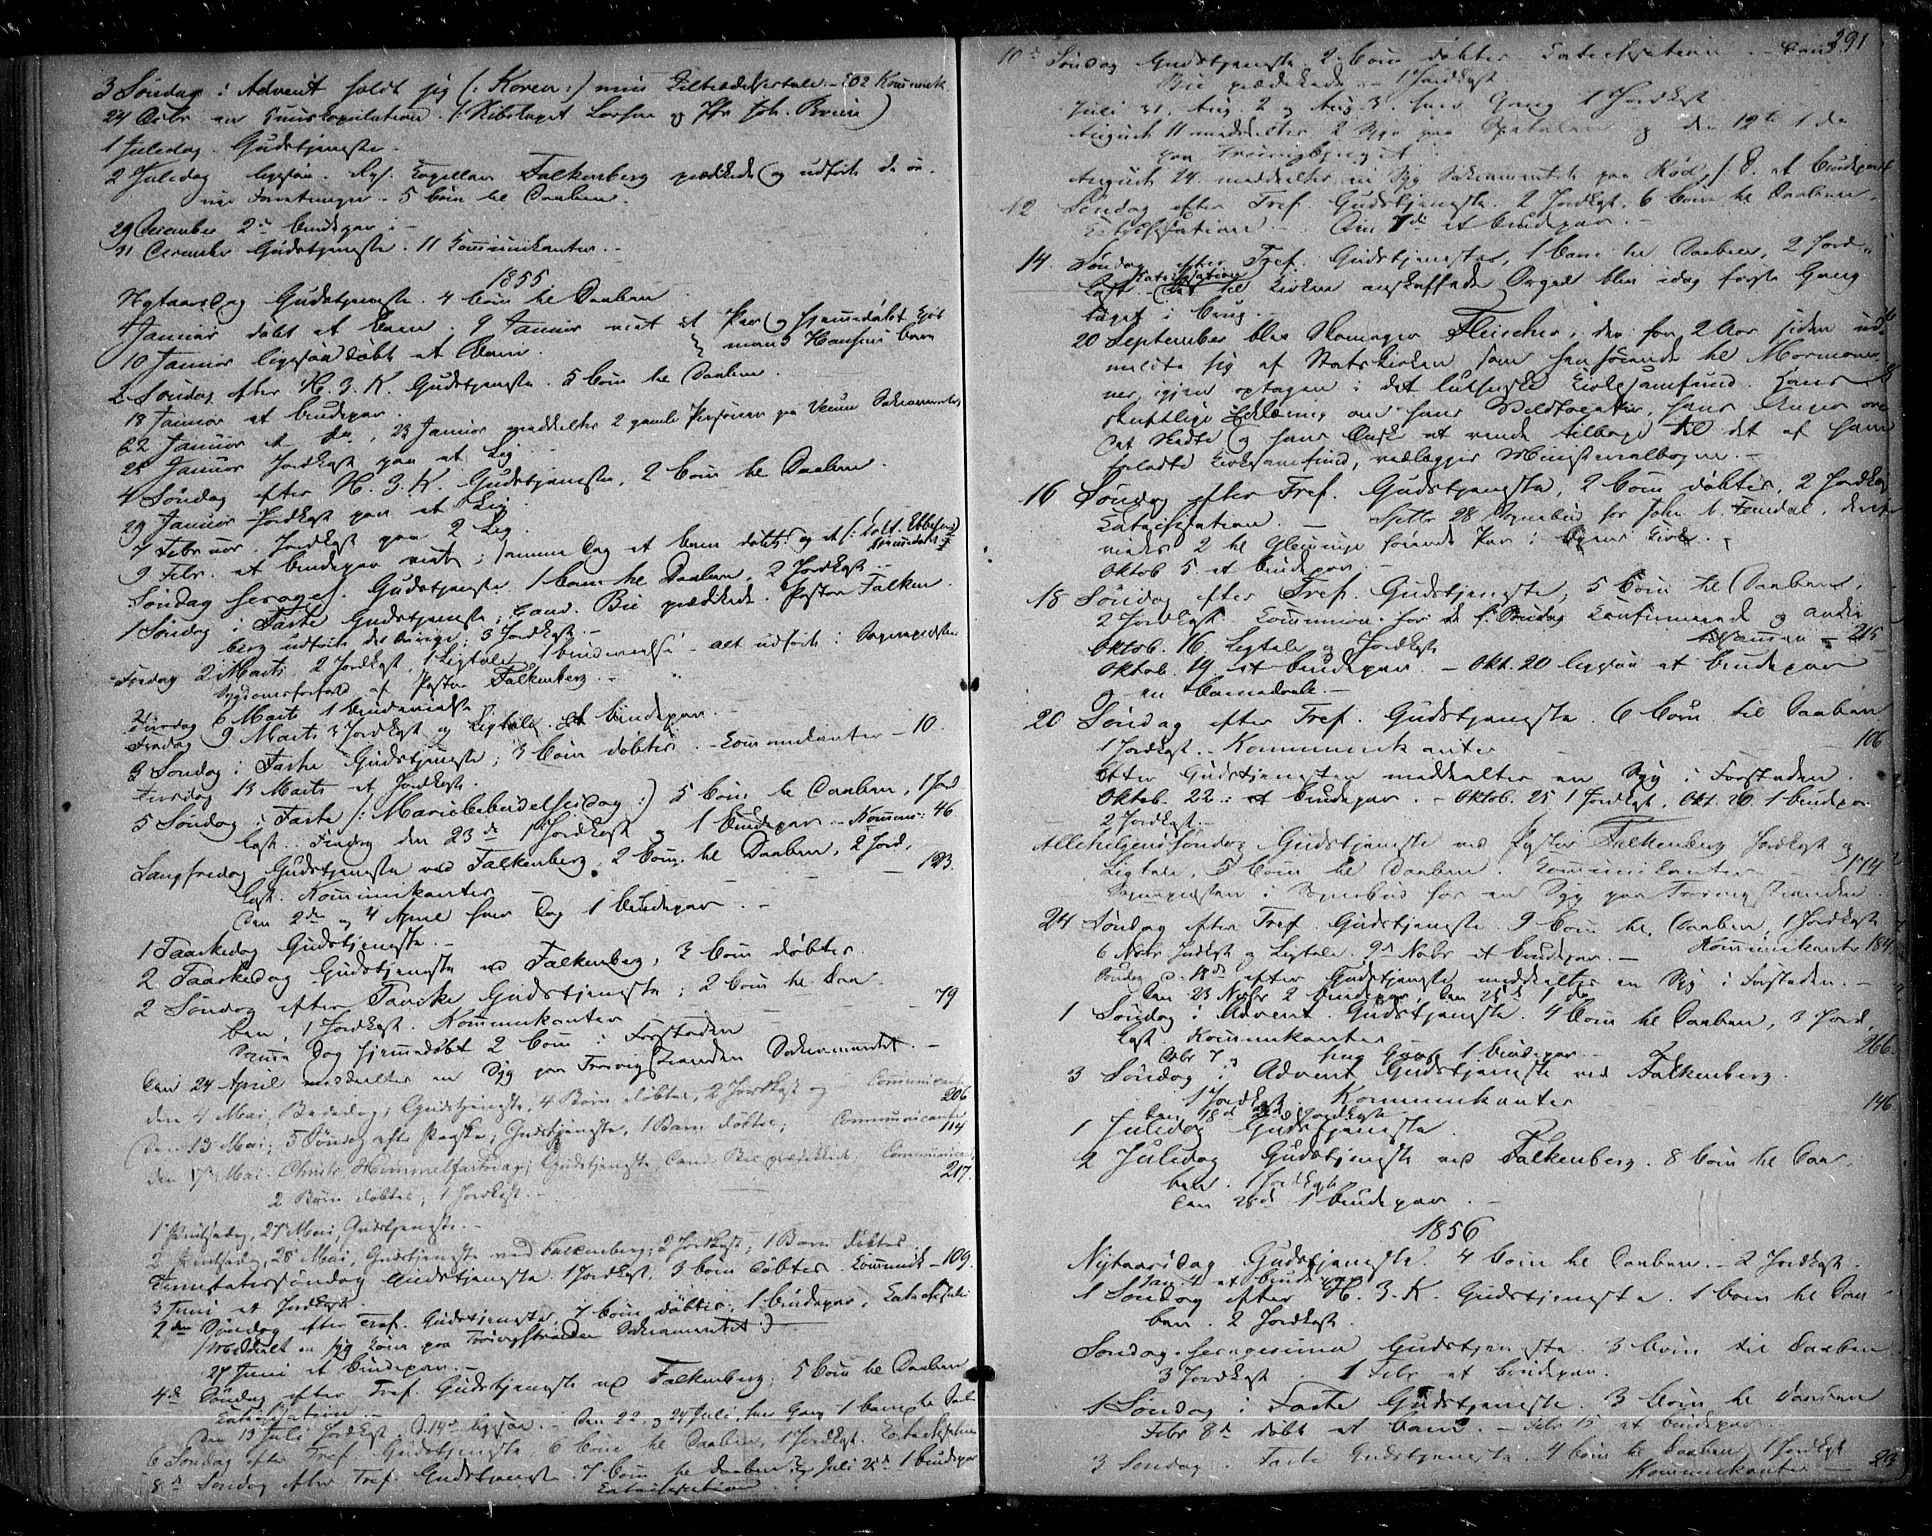 3 Søndag i Advent holdt jeg (: Koren :) min Tiltrædelsestale – 102 Kommunik
24 Decbr en Huuskopulation (: Skibskapt Larsen og Jfr Joh. Brinc)
1 Juledag. Gudstjeneste.
2 Juledag ligesaa. Res. Capellan Falkenberg prædikede og udførte de øv-
rige Forretninger – 5 børn til Daaben.
29 December 2 brudepar. –
31 December Gudstjeneste. 11 Kommunikanter. –
1855
Nytaarsdag Gudstjeneste. 4 børn til Daaben
4 Januar døbt et barn. 9 Januar viet et Par og hjemmedøbt
mand Hansens barn
10 Januar ligesaa døbt et barn.
2 Søndag efter H. 3. K. Gudstjeneste. 5 børn til Daaben.
18 Januar et brudepar.
22 Januar et do, 23 Januar meddeltes 2 gamle Personer paa Sakramentet
25 Januar Jordkast paa et Lig
4 Søndag efter H. 3. K. Gudstjeneste, 2 børn til Daaben.
29 Januar Jordkast paa et Lig
7 Februar. Jordkast paa 2 Lig.
9 Febr. et brudepar viet; samme Dag et barn døbt og et
Søndag Sexages. Gudstjeneste 1 barn til Daaben, 2 Jordkast –
1 Søndag i Faste Gudstjeneste; Cand. Bie prædikede. Pastor Falken-
berg udførte det Øvrige; 3 Jordkast. –
Fredag 2 Marts 2 Jordkast, 1 Ligtale, 1 brudevielse – alt udført i Sogneprestens
Sygdomsforfald af Pastor Falkenberg. –
Tirsdag 6 Marts 1 brudevielse
Fredag 9 Marts 3 Jordkast og Ligtale. et brudepar. –
3 Søndag i Faste Gudstjeneste; 3 børn døbtes. – Kommunikanter – 10.
Tirsdag 13 Marts et Jordkast.
5 Søndag i Faste (: Mariæbebudelsesdag :) 5 børn til Daaben, 1 Jord
kast. Fredag den 23de 1 Jordkast og 1 brudepar – Kommun: 46
Langfredag Gudstjeneste ved Falkenberg. 2 børn til Daaben, 2 Jord,
kast. Kommunikanter – – – 123.
Den 2den og 4 April hver Dag 1 brudepar. –
1 Paaskedag Gudstjeneste. –
2 Paaskedag Gudstjeneste ved Falkenberg, 3 børn døbtes.
2 Søndag efter Paaske Gudstjeneste; 2 børn til Daa-
ben, 1 Jordkast. Kommunikanter – 79
Samme Dag hjemmedøbt 2 børn i Forstaden
Den 24 April meddeeltes en Syg paa Torvigstranden Sakramentet. –
den 4 Mai, Bededag; Gudstjeneste, 4 Børn døbtes, 2 Jordkast og Communicanter
206
Den 13 Mai, 5 Søndag efter Paaske; Gudstjeneste, 1 Barn døbtes; Communicanter
114
den 17 Mai. Christi Himmelfartsdag; Gudstjeneste, Cand. Bie prædikede; Communican
217.
2 Børn døbtes, 1 Jordkast. –
1 Pintsedag, 27 Mai, Gudstjeneste. –
2 Pintsedag, 28 Mai, Gudstjeneste ved Falkenberg; 2 Jordkast; 1 Barn døbtes
Trinitatissøndag Gudstjeneste. 1 Jordkast. 3 børn døbtes. Kommunik – 109.
3 Juni et Jordkast.
2den Søndag efter Tref. Gudstjeneste, 7 børn døbtes, 1 brudepar, Katekisation
(Meddeelt en syg Kone paa Torvigstranden Sakramentet :)
27 Juni et brudepar. –
4de Søndag efter Tref. Gudstjeneste ved Falkenberg; 5 børn til Daaben
Katekisation –
Den 13 Juli Jordkast. D. 14de ligesaa. – Den 22 og 24 Juli, hver Gang 1 barn til Daab
6 Søndag efter Tref. Gudstjeneste. 6 børn til Daaben, 1 Jordkast. Katekisation
8de Søndag efter Tref. Gudstjeneste. 7 børn til Daaben. Juli 25de 1 brudepar
Katekisation
391
10de Søndag Gudstjeneste. 2 børn døbtes Katechisation. – Cand
Bie prædikede – 1 Jordkast.
Juli 31, Aug. 2 og Aug. 3. hver Gang 1 Jordkast
August 11 meddeeltes 2 Syge paa Spitalen og den 19de 1 do
paa
August 24. meddeeltes en Syg Sakramentet paa Rød, s. D. et brudepar
12 Søndag efter Tref. Gudstjeneste. 2 Jordkast, 6 børn til Daaben.
Katekisation – Den 7de et brudepar. –
14. Søndag efter Tref. Gudstjeneste, 1 barn til Daaben, 2 Jord-
kast. Katekisation Det til Kirken anskaffede Orgel blev idag første Gang
taget i brug. –
20 September blev Skomager Fleischer, der for 2 Aar siden ud-
meldte sig af Statskirken som henhørende til Mormoner-
ner, igjen optagen i det lutherske Kirkesamfund. Hans
skriftlige Erklæring om hans Vildfarelser, hans Anger over
det Skedte og hans Ønske at vende tilbage til det af ham
forladte Kirkesamfund, vedlægges Ministerialbogen. –
16 Søndag efter Tref. Gudstjeneste, 2 børn døbtes, 2 Jordkast
Katechisation. – Septbr 28. Sognebud for John
viedes 2 til Gjerrings hørende Par i Byens Kirke. –
Oktob 5 et brudepar. –
18 Søndag efter Tref. Gudstjeneste, 5 børn til Daaben,
2 Jordkast. Kommunion for de f. Søndag Konfirmerede og andre
tilsammen – 215
Oktob. 16 Ligtale og Jordkast
Oktob. 19 et brudepar – Okt. 20 ligesaa et brudepar
og en barnedaab. –
20 Søndag efter Tref. Gudstjeneste. 6 børn til Daaben
1 Jordkast. – Kommunikanter – 106
Efter Gudstjenesten meddeeltes en Syg i Forstaden.
Oktob. 22: et brudepar. – Oktob. 25 1 Jordkast, Okt. 26. 1 brudepar
2 Jordkast. –
Allehelgenssøndag Gudstjeneste ved Pastor Falkenberg Jordkast og
Ligtale, 5 børn til Daaben. Kommunikanter – 174
Sognepresten i Sognebud for en Syg paa Torvigstranden.
24 Søndag efter Tref. Gudstjeneste. 9 børn til Daaben, 1 Jordkast
Kommunikanter 184.
6 Novbr Jordkast og Ligtale. 9de Novbr et brudepar. –
Søndag d. 18de efter Gudstjeneste meddeeltes en Syg i Forstaden. –
Den 23 Novbr 2 brudepar, den 25de 1 do
1 Søndag i Advent Gudstjeneste. 4 børn til Daaben, 3 Jord,
kast Kommunikanter – 266.
Decbr 7 1 brudepar. –
3 Søndag i Advent Gudstjeneste ved Falkenberg.
1 Jordkast. Kommunikanter – 146
Den 18de Jordkast
1 Juledag Gudstjeneste.
2 Juledag Gudstjeneste ved Falkenberg. 8 børn til Daa-
ben. 1 Jordkast
Den 28de 1 brudepar. –
1856
Nytaarsdag Gudstjeneste. 4 børn til Daaben. – 2 Jordkast.
Jan. 4 et brudepar
1 Søndag efter H. 3. K. Gudstjeneste. 1 barn til Daa
ben. 2 Jordkast.
Søndag Sexagesima Gudstjeneste. 3 børn til Daaben
3 Jordkast. 1 Febr et brudepar.
1 Søndag i Faste Gudstjeneste. 3 børn til Daaben
Febr 8de døbt et barn. – Febr 15 et brudepar.
3 Søndag i Faste Gudstjeneste. 4 børn til Daaben, 1 Jordkast
Kommunikanter –